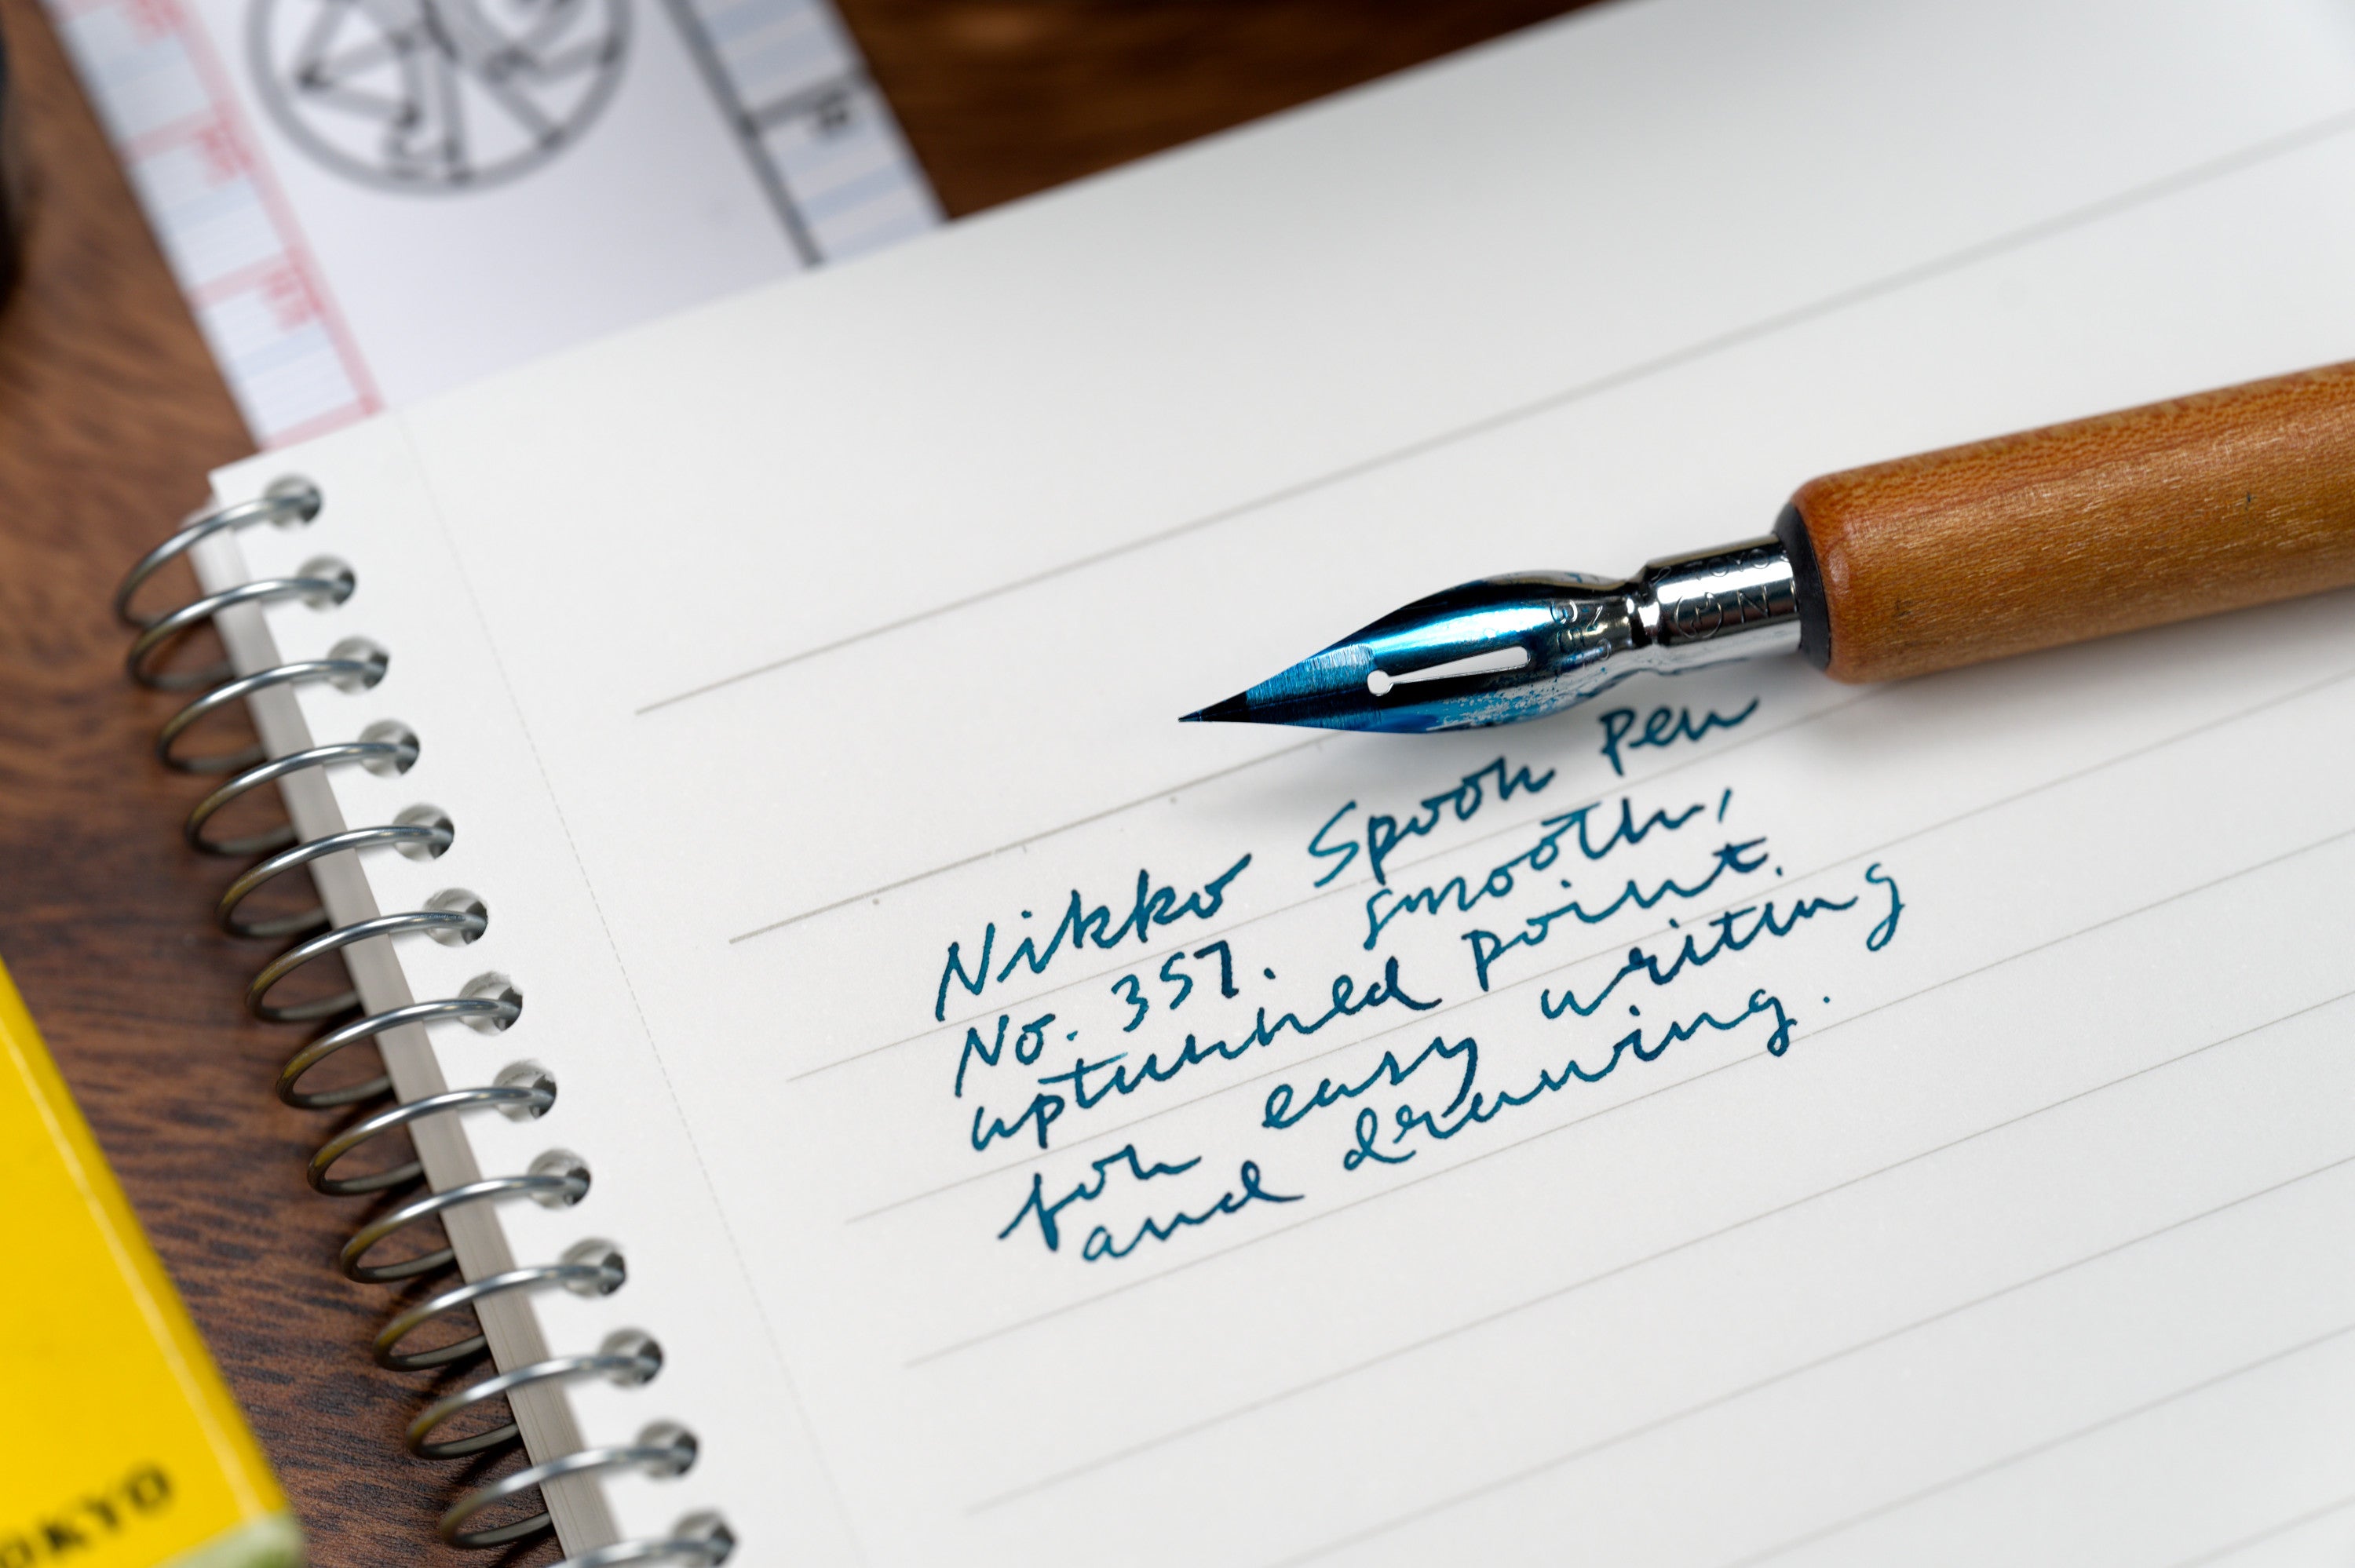 Nikko Spoon Pen
No. 357. smooth,
upturned point.
for easy writing
and drawing.
OKYO